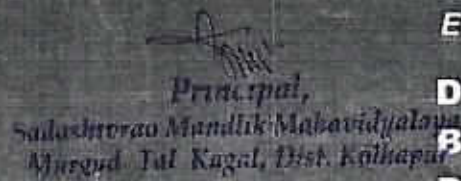 E
Principal,
D
Sadashivrao Mandlik Mahavidyalaya
B
Murgud Tal Kagal, Dist. Kolhapur